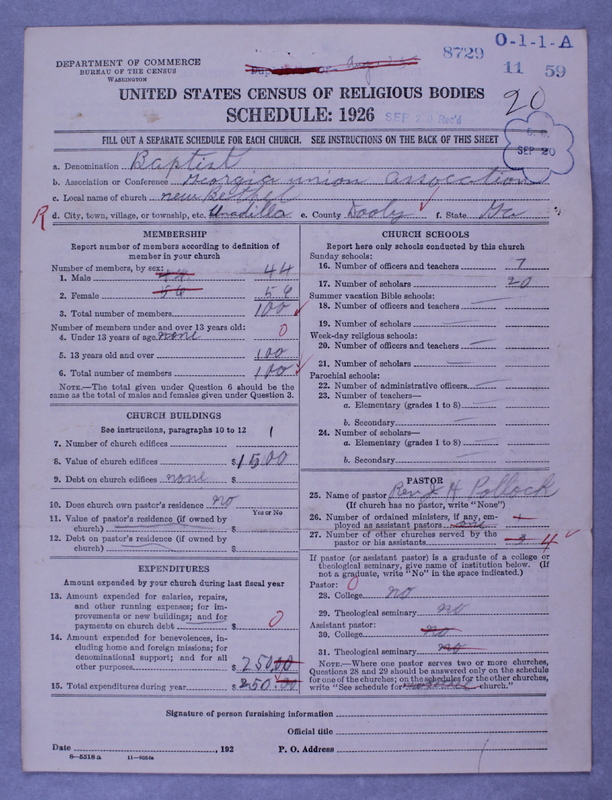 0-1-1-A
8729
11 59
DEPARTMENT OF COMMERCE
BUREAU OF THE CENSUS
WASHINGTON
UNITED STATES CENSUS OF RELIGIOUS BODIES
SCHEDULE: 1926
SEP 20 Rec'd
20
SEP 20
FILL OUT A SEPARATE SCHEDULE FOR EACH CHURCH. SEE INSTRUCTIONS ON THE BACK OF THIS SHEET
a. Denomination Baptist
b. Association or Conference Georgia union assocation
c. Local name of church new Bethel
R d. City, town, village, or township, etc. Unadilla e. County Dooly f. State Ga
MEMBERSHIP
Report number of members according to definition of
member in your church
Number of members, by sex:
1. Male 44 44
2. Female 56 56
3. Total number of members 100
Number of members under and over 13 years old:
4. Under 13 years of age none 0
5. 13 years old and over 100
6. Total number of members 100
NOTE.—The total given under Question 6 should be the
same as the total of males and females given under Question 3.
CHURCH BUILDINGS
See instructions, paragraphs 10 to 12
7. Number of church edifices 1
8. Value of church edifices $1500
9. Debt on church edifices none $
10. Does church own pastor's residence? no
Yes or No
11. Value of pastor's residence (if owned by
church) $
12. Debt on pastor's residence (if owned by
church) $
EXPENDITURES
Amount expended by your church during last fiscal year
13. Amount expended for salaries, repairs,
and other running expenses; for im-
provements or new buildings; and for
payments on church debt $ 0
14. Amount expended for benevolences, in-
cluding home and foreign missions; for
denominational support; and for all
other purposes $ 250.00
15. Total expenditures during year $ 250.00
CHURCH SCHOOLS
Report here only schools conducted by this church
Sunday schools:
16. Number of officers and teachers 7
17. Number of scholars 20
Summer vacation Bible schools:
18. Number of officers and teachers
19. Number of scholars
Week-day religious schools:
20. Number of officers and teachers
21. Number of scholars
Parochial schools:
22. Number of administrative officers
23. Number of teachers—
a. Elementary (grades 1 to 8)
b. Secondary
24. Number of scholars—
a. Elementary (grades 1 to 8)
b. Secondary
PASTOR
25. Name of pastor Rev J H Pollock
(If church has no pastor, write "None")
26. Number of ordained ministers, if any, em-
ployed as assistant pastors
27. Number of other churches served by the
pastor or his assistants 3 4
If pastor (or assistant pastor) is a graduate of a college or
theological seminary, give name of institution below. (If
not a graduate, write "No" in the space indicated.)
Pastor: 0
28. College no
29. Theological seminary no
Assistant pastor:
30. College no
31. Theological seminary no
NOTE.—Where one pastor serves two or more churches,
Questions 28 and 29 should be answered only on the schedule
for one of the churches; on the schedules for the other churches,
write "See schedule for church."
Signature of person furnishing information
Official title
Date , 192 P. O. Address
8—5518a 11—9054a